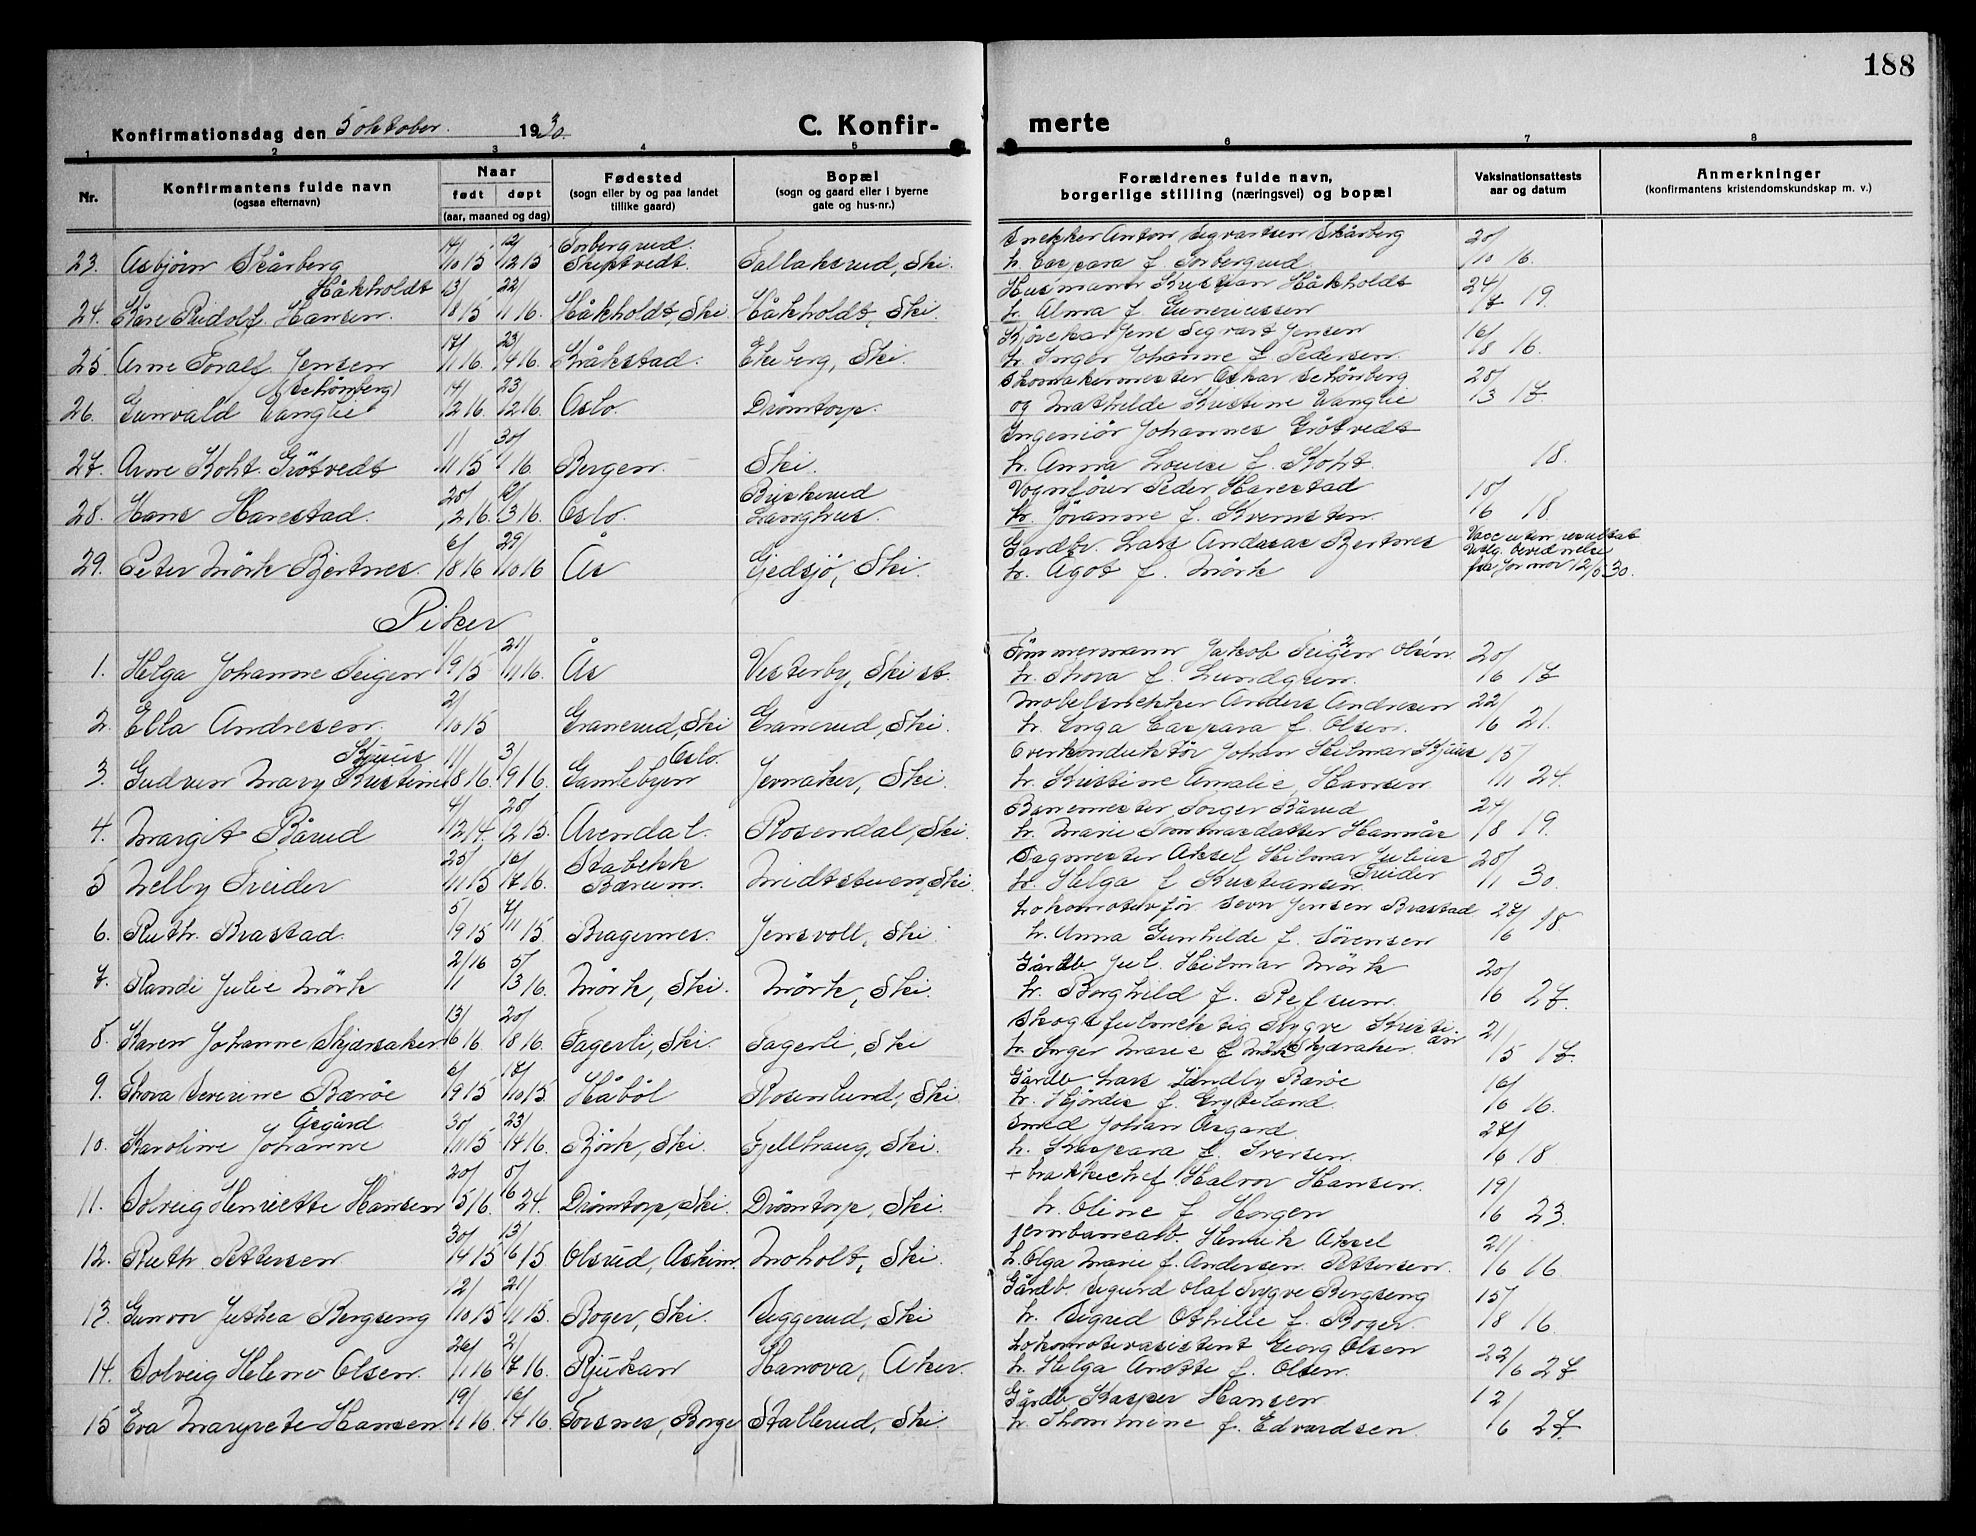 188
Konfirmationsdag den 5 oktober 1930. C. Konfir- merte
1 2 3 4 5 6 7 8
Nr. Konfirmantens fulde navn (ogsaa efternavn) Naar født døpt (aar, maaned og dag) Fødested (sogn eller by og paa landet tillike gaard) Bopæl (sogn og gaard eller i byerne gate og hus-nr.) Forældrenes fulde navn, borgerlige stilling (næringsvei) og bopæl Vaksinationsattests aar og datum Anmerkninger (konfirmantens kristendomskundskap m. v.)
23. Asbjörn Skårberg 14/10 15 12/12 15 Torbergrud. Skiptvedt. Tallaksrud, Ski. Snekker Anton Sigvartsen Skårberg
h. Caspara f. Torbergrud. 20/10 16.
24. Kåre Rudolf Hansen. Håkholdt 13/8 15 22/1 16. Håkholdt, Ski. Håkholdt, Ski. Husmann Kristian Håkholdt
h. Alma f. Gunerussen 24/7 19.
25. Arne Toralf Jensen 17/1 16 23/4 16. Kråkstad. Ekeberg, Ski. Kjörekar Jens Sigvart Jensen
h. Inger Johanne f. Pedersen. 16/8 16.
26. Gunvald Vanglie (Schönberg) 14/2 16. 23/2 16. Oslo. Drömtorp. Skomakermester Oskar Schönberg
og Mathilde Kristine Vanglie 20/3 17.
27. Arne Koht Grötvedt 1/11 15 30/1 16. Bergen. Ski. Ingeniör Johannes Grötvedt
h. Anna Louise f. Koht. 18.
28. Hans Harestad. 20/2 16. 6/3 16. Oslo. Buskerud Langhus. Vognförer Peder Harestad
h. Jöranne f. Kvernsten. 10/6 18.
29. Peter Mörk Bjertnes. 6/8 16 29/10 16 Ås Gjedsjö, Ski. Gardbr. Lars Andreas Bjertnes
h. Ågot f. Mörk Vacc uten resultat
iflg. bevidnelse
fra jormor 12/5 30.
Piker
1. Helga Johanne Teigen 1/9 15 21/11 16. Ås Vesterby, Ski st. Tömmermann Jakob Teigen Olsen
h. Thora f. Lundgren. 20/6 17
2. Ella Andresen. 2/10 15 Granerud, Ski Granerud, Ski. Möbelsnekker Anders Andresen
h. Inga Caspara f. Olsen. 22/6 21.
3. Gudrun Mary Kristine Kjuus 11/8 16. 3/9 16. Gamlebyen Oslo. Jernaker, Ski. Overkonduktör Johan Hilmar Kjuus
h. Kristine Amalie Hansen 15/11 24.
4. Margit Bårud 4/12 14. 20/2 15. Arendal. Rosendal, Ski. Banemester Torger Bårud
h. Marie Tommasdatter Hamnås 24/8 19.
5 Nelly Treider 25/11 15 16/7 16. Stabekk Bærum. Midtstuen, Ski. Fagmester Aksel Hilmar Julius Treider
h. Helga f. Kristiansen 20/11 30.
6. Ruth Brastad. 5/9 15 7/11 15. Bragernes. Jensvoll, Ski. Lokomotivför. Sevn Jensen Brastad
h. Anna Gunhilde f. Sörensen 27/6 18
7. Randi Julie Mörk 2/11 16 5/3 16. Mörk, Ski. Mörk, Ski. Gårdb. Jul. Hilmar Mörk
h. Borghild f. Refsum. 20/6 27.
8. Karen Johanne Skjæraker 13/6 16. 20/8 16. Fagerli, Ski. Fagerli, Ski Skogsfulmektig Trygve Kristian
h. Inger Marie f. Mörk Skjæraker. 21/5 17.
9. Thora Severine Baröe 6/9 15 17/10 15 Håböl Rosenlund, Ski Gårdb. Lars Lundby Baröe
h. Hjördis f. Gryteland. 16/6 16.
10. Karoline Johanne Åsgård 30/11 15 23/4 16. Björk, Ski. Fjellhaug, Ski. Smed Johan Åsgard.
h. Kaspara f. Iversen. 27/6 18
11. Solveig Henriette Hansen 20/5 16. 5/6 24. Drömtorp, Ski. Drömtorp, Ski. + brakkechef Halvor Hansen.
h. Oline f. Horgen 19/6 23.
12. Ruth Pettersen 30/4 15 13/6 15 Olsrud, Askim. Moholt, Ski. Jernbanearb. Henrik Aksel
h. Olga Marie f. Andersen Pettersen. 21/6 16.
13. Gunvor Juthea Bergseng 12/10 15 21/11 15. Boger, Ski. Siggerud, Ski Gårdb. Sigurd Olaf Trygve Bergseng
h. Sigrid Othilie f. Boger. 15/8 16.
14. Solveig Helene Olsen. 26/1 16 2/7 16. Rjukan Hanova, Aker. Lokomotivasistent Georg Olsen
h. Helga Anette f. Olsen. 22/6 27
15 Eva Margrete Hansen. 19/1 16. 16/4 16. Torsnes, Borge Stallerud, Ski. Gårdb. Kasper Hansen
h. Thommine f. Edvardsen. 12/6 27.